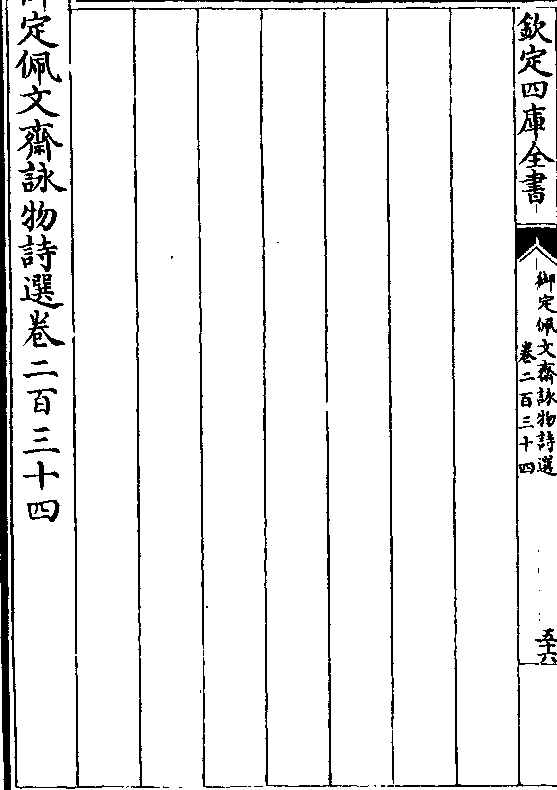 欽定四庫全書
御定佩文齋詠物詩選
卷二百三十四
五十六
御定佩文齋詠物詩選卷二百三十四